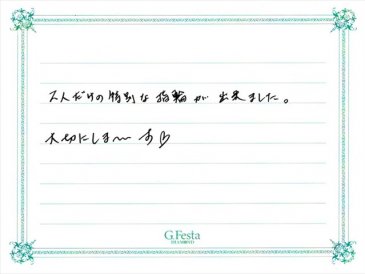 2人だけの特別な指輪が出来ました。
大切にしま〜す♡
G.Festa
DIAMOND